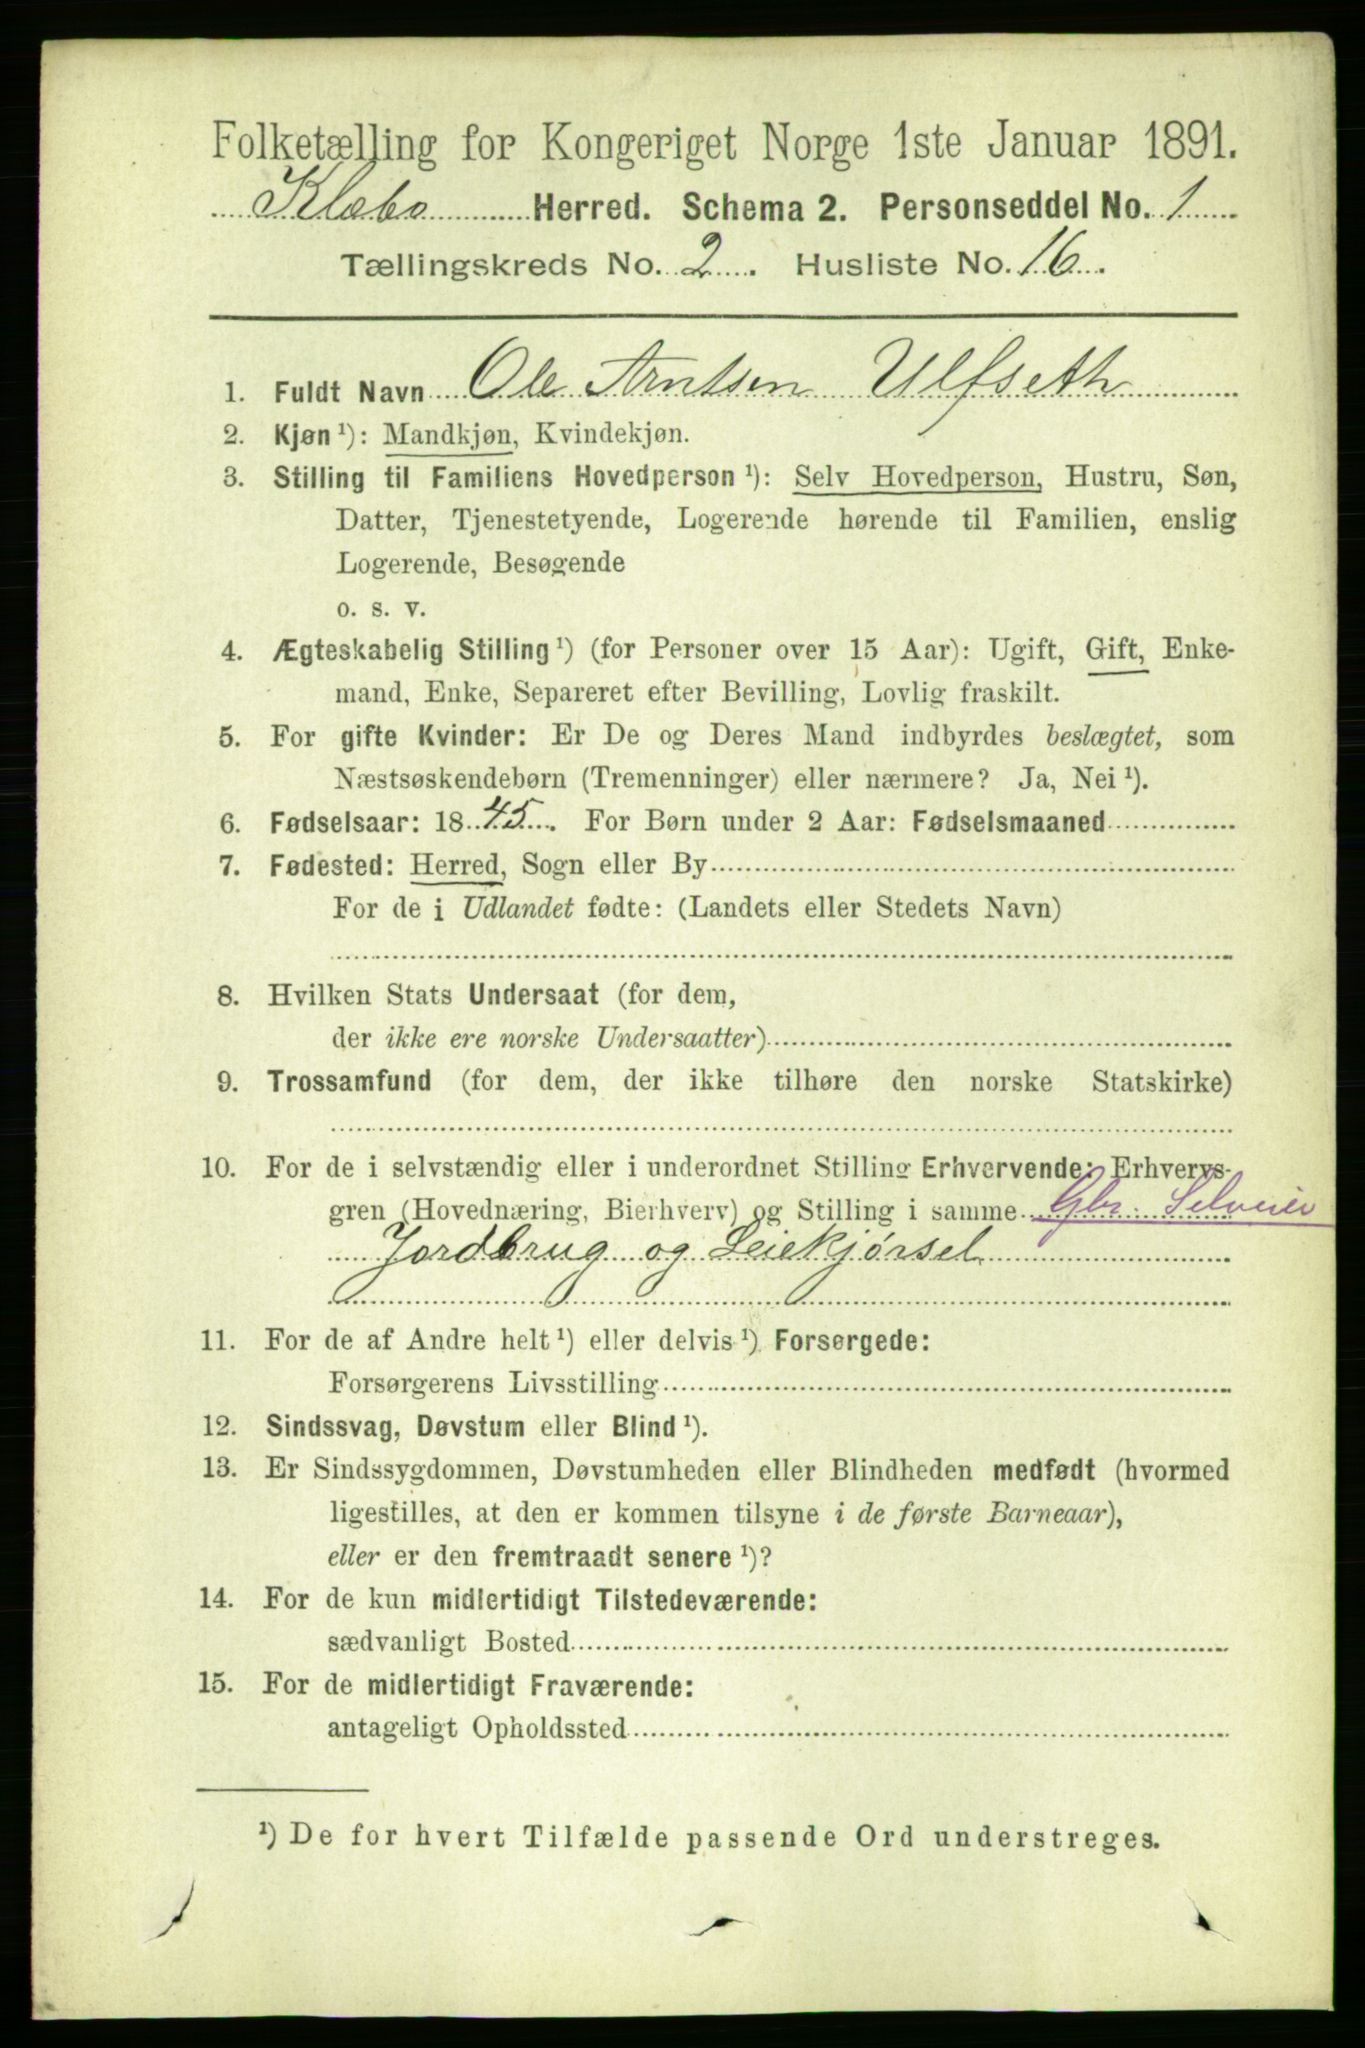 Folketælling for Kongeriget Norge 1ste Januar 1891.
Klæbo Herred. Schema 2. Personseddel No. 1
Tællingskreds No. 2. Husliste No. 16.
1. Fuldt Navn Ole Arntsen Ulfseth
2. Kjøn ¹): Mandkjøn, Kvindekjøn.
3. Stilling til Familiens Hovedperson ¹): Selv Hovedperson, Hustru, Søn,
Datter, Tjenestetyende, Logerende hørende til Familien, enslig
Logerende, Besøgende
o. s. v.
4. Ægteskabelig Stilling ¹) (for Personer over 15 Aar): Ugift, Gift, Enke-
mand, Enke, Separeret efter Bevilling, Lovlig fraskilt.
5. For gifte Kvinder: Er De og Deres Mand indbyrdes beslægtet, som
Næstsøskendebørn (Tremenninger) eller nærmere? Ja, Nei ¹).
6. Fødselsaar: 1845. For Børn under 2 Aar: Fødselsmaaned
7. Fødested: Herred, Sogn eller By
For de i Udlandet fødte: (Landets eller Stedets Navn)
8. Hvilken Stats Undersaat (for dem,
der ikke ere norske Undersaatter)
9. Trossamfund (for dem, der ikke tilhøre den norske Statskirke)
10. For de i selvstændig eller i underordnet Stilling Erhvervende: Erhvervs-
gren (Hovednæring, Bierhverv) og Stilling i samme Gbr. Selveier
Jordbrug og Leiekjørsel
11. For de af Andre helt ¹) eller delvis ¹) Forsørgede:
Forsørgerens Livsstilling
12. Sindssvag, Døvstum eller Blind ¹).
13. Er Sindssygdommen, Døvstumheden eller Blindheden medfødt (hvormed
ligestilles, at den er kommen tilsyne i de første Barneaar),
eller er den fremtraadt senere ¹)?
14. For de kun midlertidigt Tilstedeværende:
sædvanligt Bosted
15. For de midlertidigt Fraværende:
antageligt Opholdssted
¹) De for hvert Tilfælde passende Ord understreges.